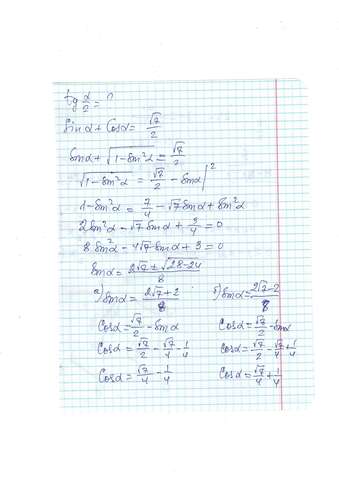 tg α/2 = ?
Sin α + Cos α = √7/2
Sin α + √(1-Sin²α) = √7/2
√(1-Sin²α) = √7/2 - Sin α |²
1-Sin²α = 7/4 - √7 Sin α + Sin²α
2Sin²α - √7 Sin α + 3/4 = 0
8Sin²α - 4√7 Sin α + 3 = 0
Sin α = (2√7 ± √(28-24))/8
а) Sin α = (2√7+2)/8
Cos α = √7/2 - Sin α
Cos α = √7/2 - √7/4 - 1/4
Cos α = √7/4 - 1/4
б) Sin α = (2√7-2)/8
Cos α = √7/2 - Sin α
Cos α = √7/2 - √7/4 + 1/4
Cos α = √7/4 + 1/4